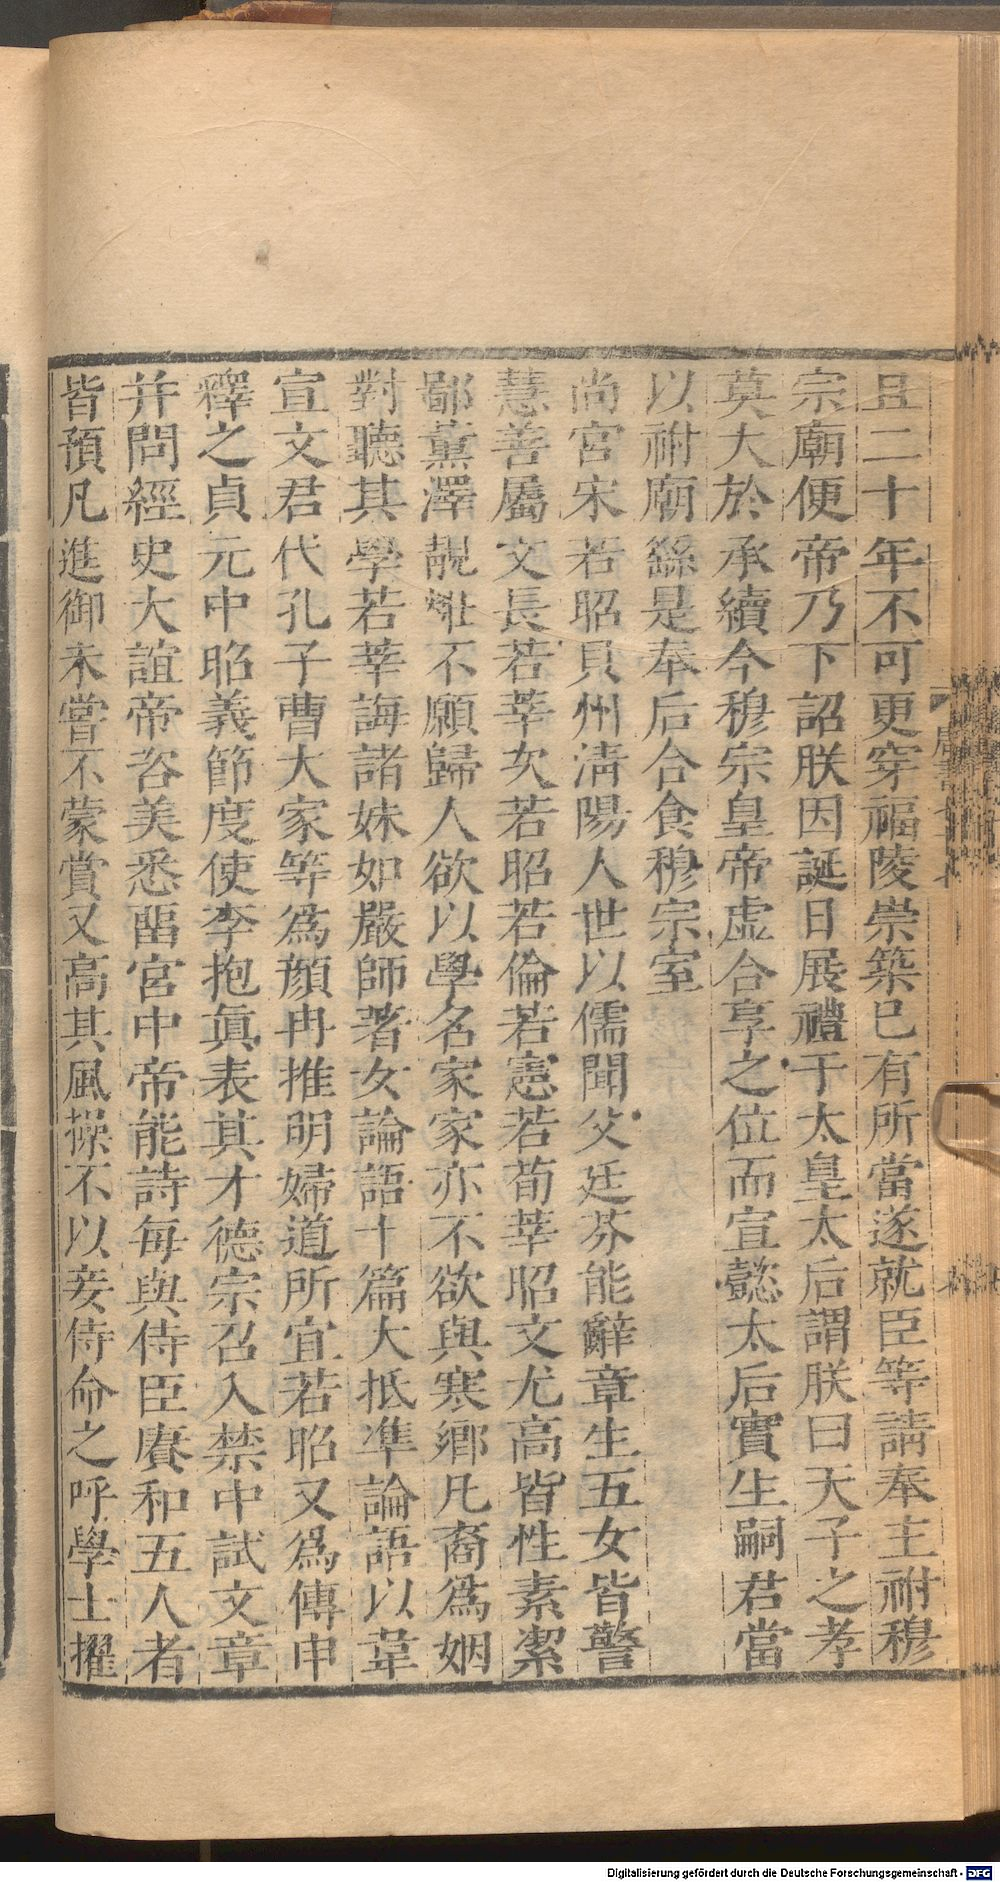 且二十年不可更穿福陵崇築已有所當遂就臣等請奉主祔穆
宗廟便帝乃下詔朕因誕日展禮于太皇太后謂朕曰天子之孝
莫大於承續今穆宗皇帝虛合享之位而宣懿太后實生嗣君當
以祔廟繇是奉后合食穆宗室
尚宮宋若昭貝州清陽人世以儒聞父廷芬能辭章生五女皆警
慧善屬文長若莘次若昭若倫若憲若荀莘昭文尤高皆性素潔
鄙薰澤靚糚不願歸人欲以學名家家亦不欲與寒鄉凡裔爲姻
對聽其學若莘誨諸妹如嚴師著女論語十篇大抵準論語以韋
宣文君代孔子曹大家等爲顏冉推明婦道所宜若昭又爲傳申
釋之貞元中昭義節度使李抱眞表其才德宗召入禁中試文章
并問經史大誼帝咨美悉畱宮中帝能詩每與侍臣賡和五人者
皆預凡進御未嘗不蒙賞又高其風操不以妾侍命之呼學士擢
Digitalisierung gefördert durch die Deutsche Forschungsgemeinschaft - DFG